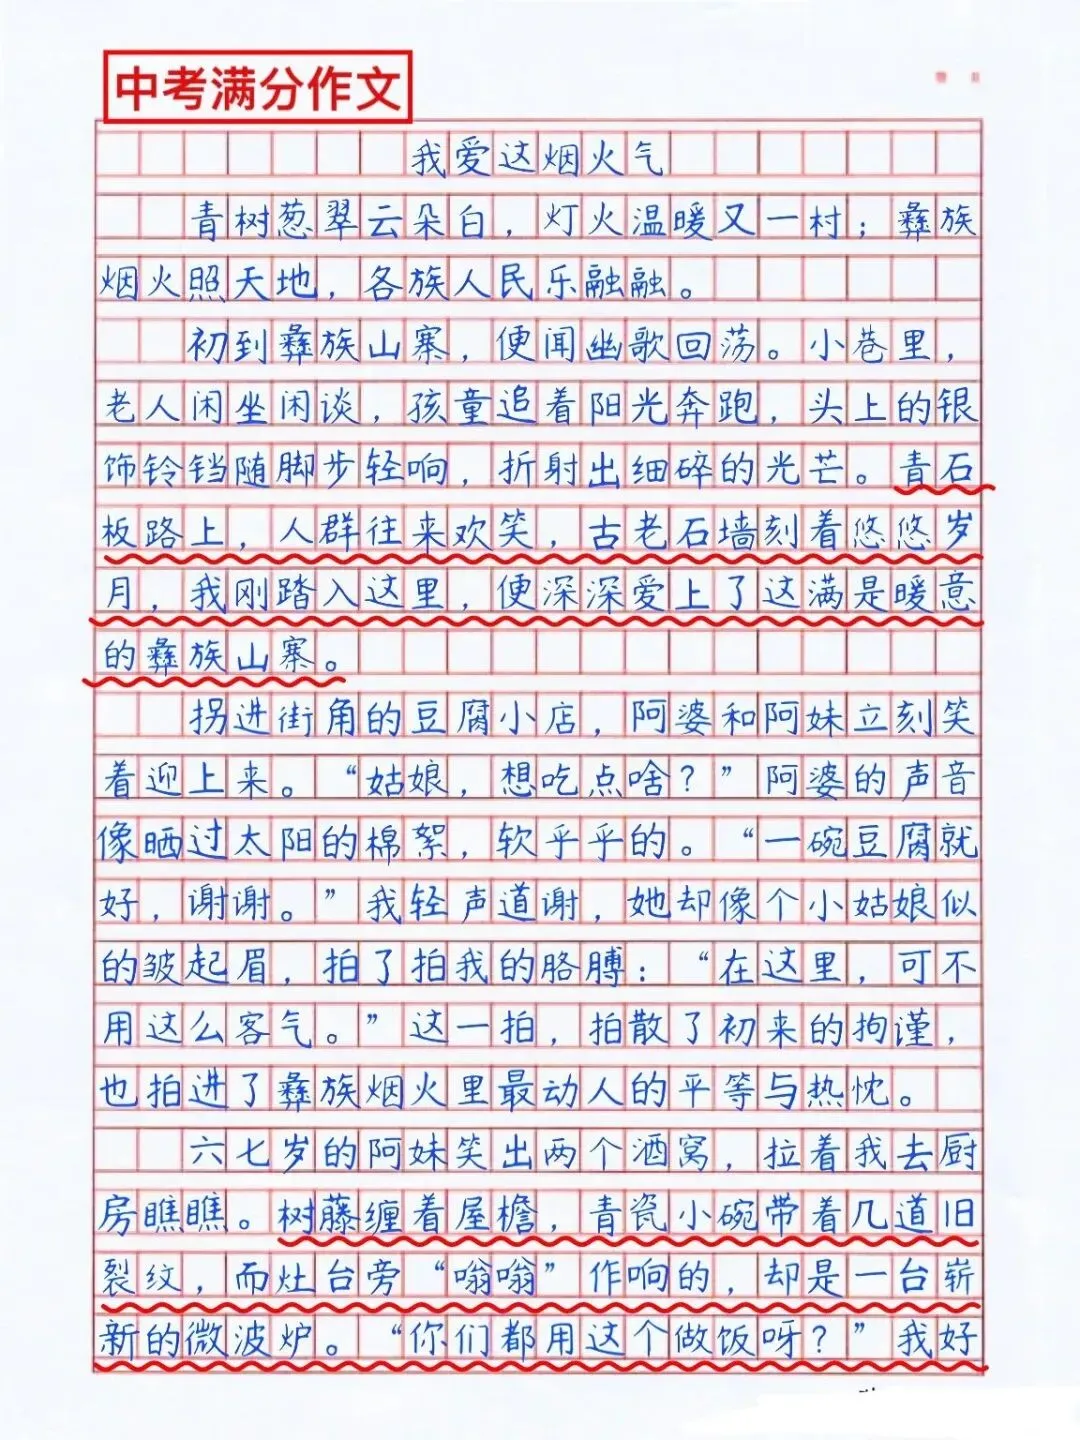 中考满分作文
我爱这烟火气
青树葱翠云朵白，灯火温暖又一村；彝族
烟火照天地，各族人民乐融融。
初到彝族山寨，便闻幽歌回荡。小巷里，
老人闲坐闲谈，孩童追着阳光奔跑，头上的银
饰铃铛随脚步轻响，折射出细碎的光芒。青石
板路上，人群往来欢笑，古老石墙刻着悠悠岁
月，我刚踏入这里，便深深爱上了这满是暖意
的彝族山寨。
拐进街角的豆腐小店，阿婆和阿妹立刻笑
着迎上来。“姑娘，想吃点啥？”阿婆的声音
像晒过太阳的棉絮，软乎乎的。“一碗豆腐就
好，谢谢。”我轻声道谢，她却像个小姑娘似
的皱起眉，拍了拍我的胳膊：“在这里，可不
用这么客气。”这一拍，拍散了初来的拘谨，
也拍进了彝族烟火里最动人的平等与热忱。
六七岁的阿妹笑出两个酒窝，拉着我去厨
房瞧瞧。树藤缠着屋檐，青瓷小碗带着几道旧
裂纹，而灶台旁“嗡嗡”作响的，却是一台崭
新的微波炉。“你们都用这个做饭呀？”我好